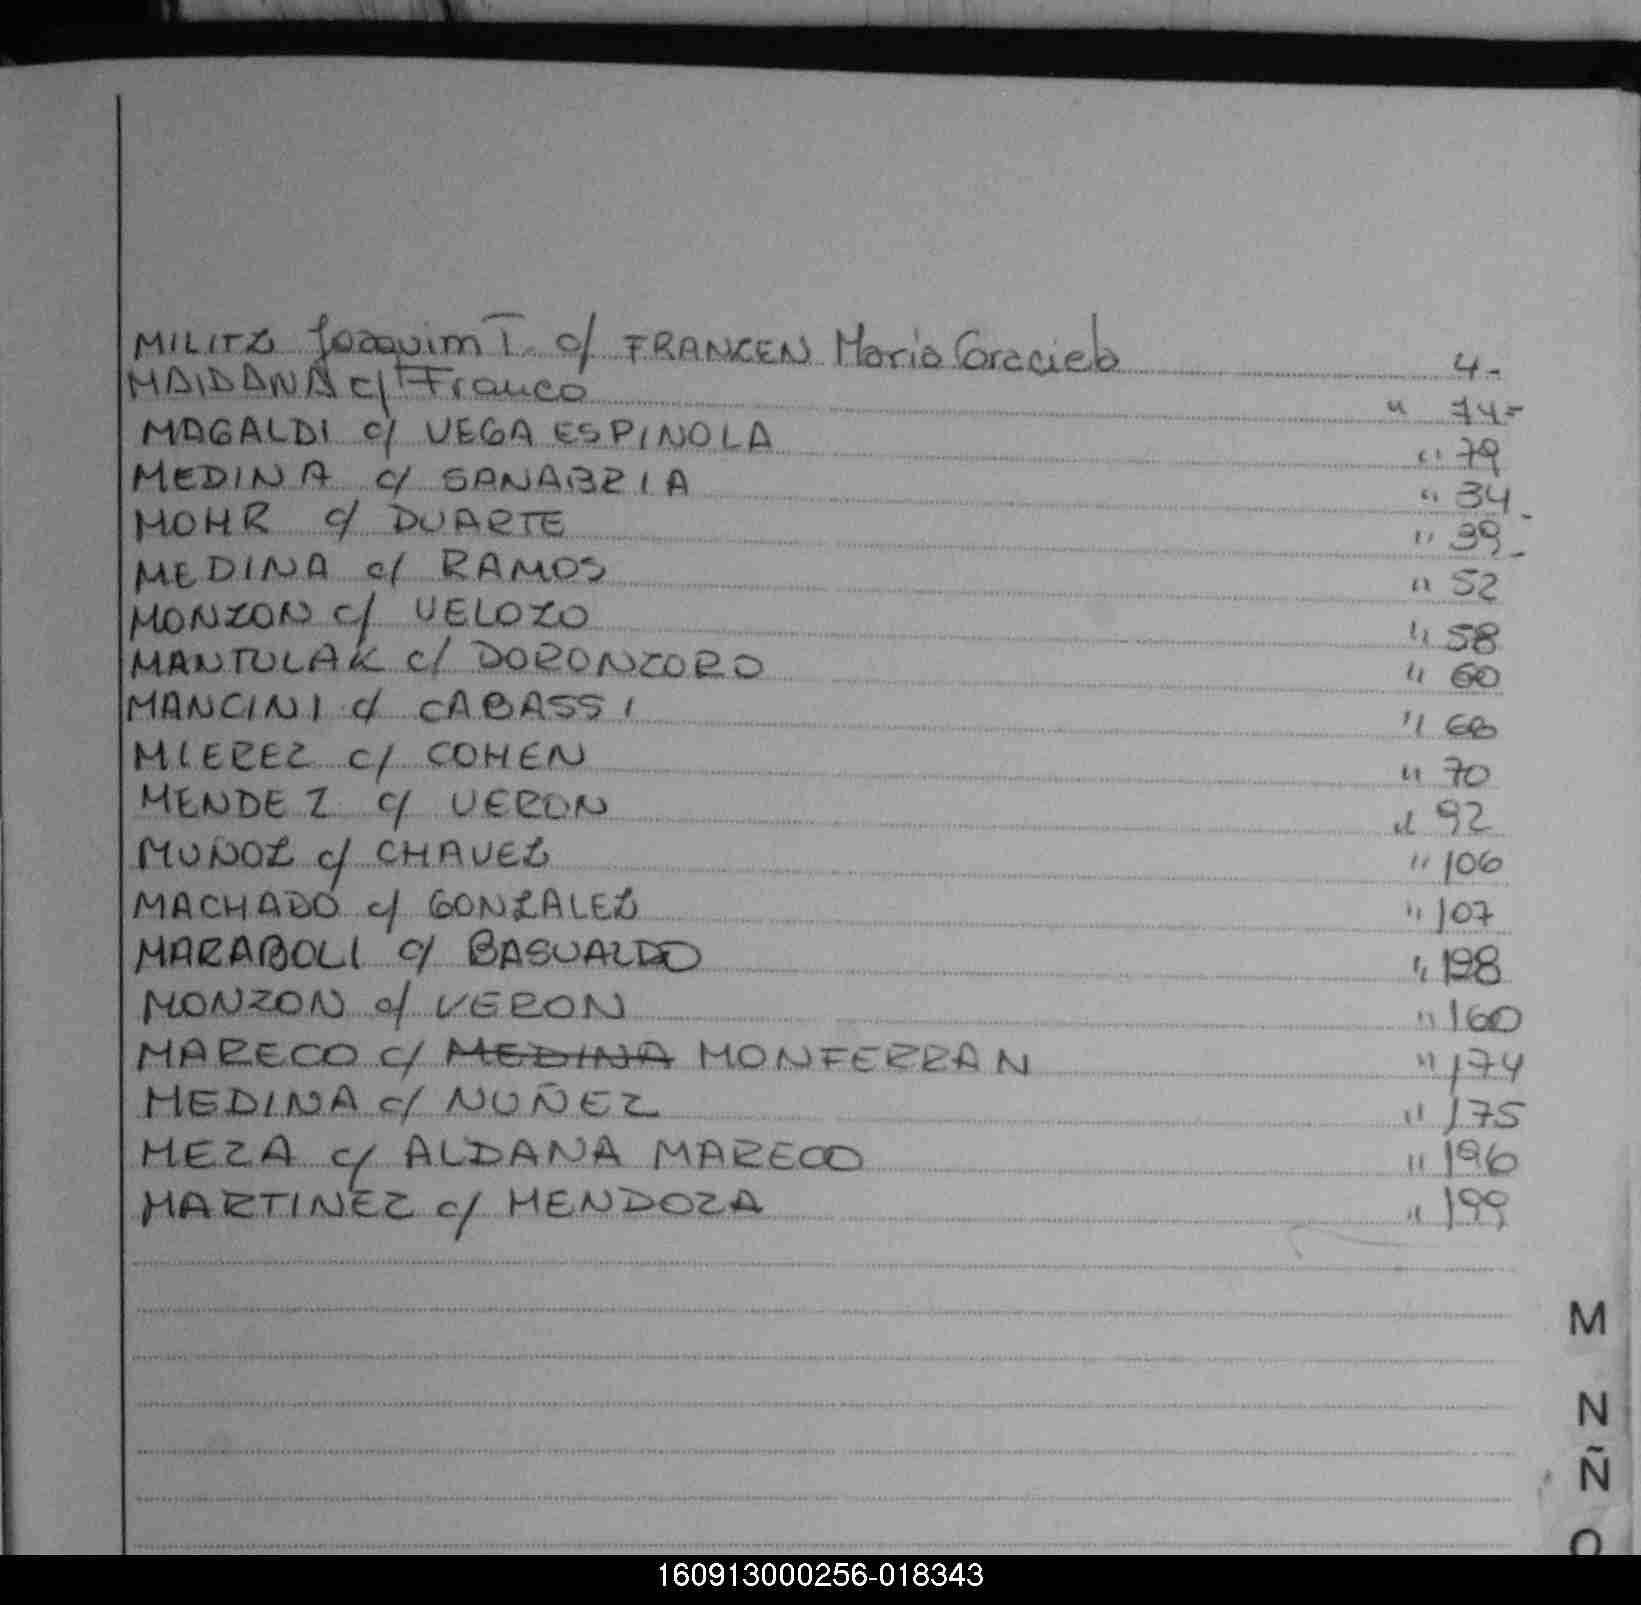 MILITZ Joaquim T. c/ FRANKEN Maria Graciela 4-
MAIDANA c/ Franco " 14-
MAGALDI c/ VEGA ESPINOLA " 79
MEDINA c/ SANABRIA " 34
MOHR c/ DUARTE " 39
MEDINA c/ RAMOS " 52
MONZON c/ VELOZO " 58
MANTULAK c/ DORONZORO " 60
MANCINI c/ CABASSI " 68
MIEREZ c/ COHEN " 70
MENDEZ c/ VERON " 92
MUÑOZ c/ CHAVEZ " 106
MACHADO c/ GONZALEZ " 107
MARABOLI c/ BASUALDO " 198
MONZON c/ VERON " 160
MARECO c/ MEDINA MONFERRAN " 174
MEDINA c/ NUÑEZ " 175
MEZA c/ ALDANA MARECO " 196
MARTINEZ c/ MENDOZA " 199
M
N
Ñ
O
160913000256-018343